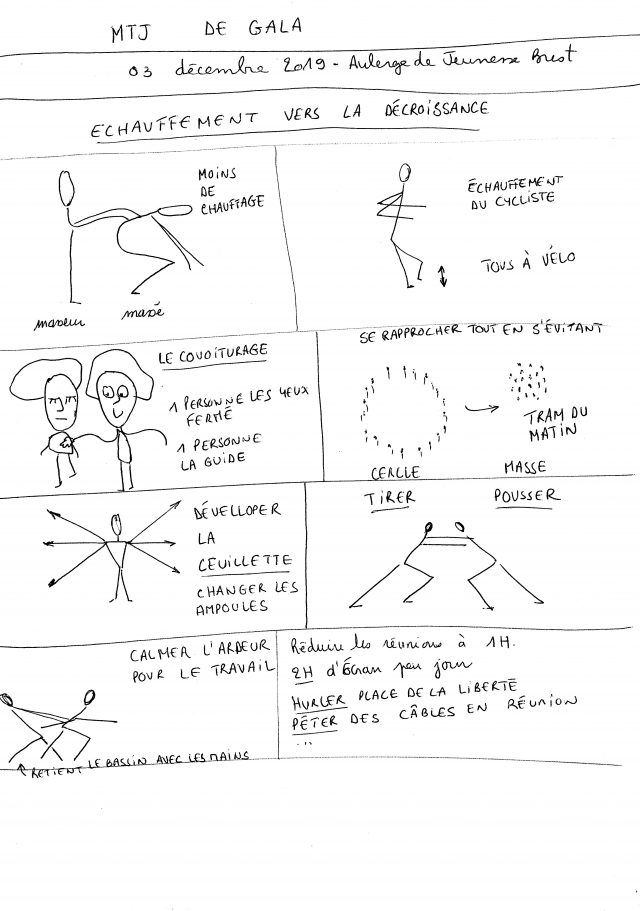 MTJ DE GALA
03 décembre 2019 - Auberge de Jeunesse Brest
ECHAUFFEMENT VERS LA DÉCROISSANCE
MOINS
DE
CHAUFFAGE
masseur massé
ÉCHAUFFEMENT
DU CYCLISTE
TOUS À VÉLO
LE COVOITURAGE
1 PERSONNE LES YEUX
FERMÉ
1 PERSONNE
LA GUIDE
SE RAPPROCHER TOUT EN S'ÉVITANT
TRAM DU
MATIN
CERCLE MASSE
DÉVELLOPER
LA
CEUILLETTE
CHANGER LES
AMPOULES
TIRER POUSSER
CALMER L'ARDEUR
POUR LE TRAVAIL
RETIENT LE BASSIN AVEC LES MAINS
Réduire les réunions à 1H.
2H d'Écran par jour
HURLER PLACE DE LA LIBERTÉ
PÉTER DES CÂBLES EN RÉUNION
...